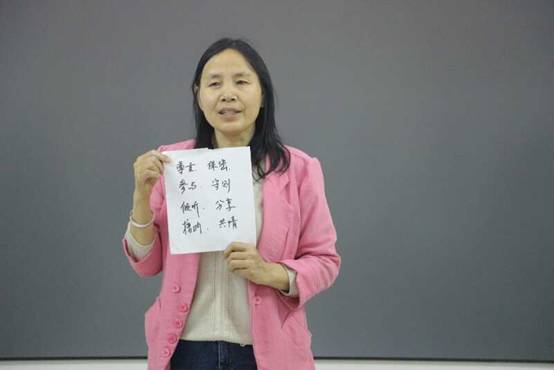 尊重、保密、
参与、守则
倾听、分享
接纳、共情